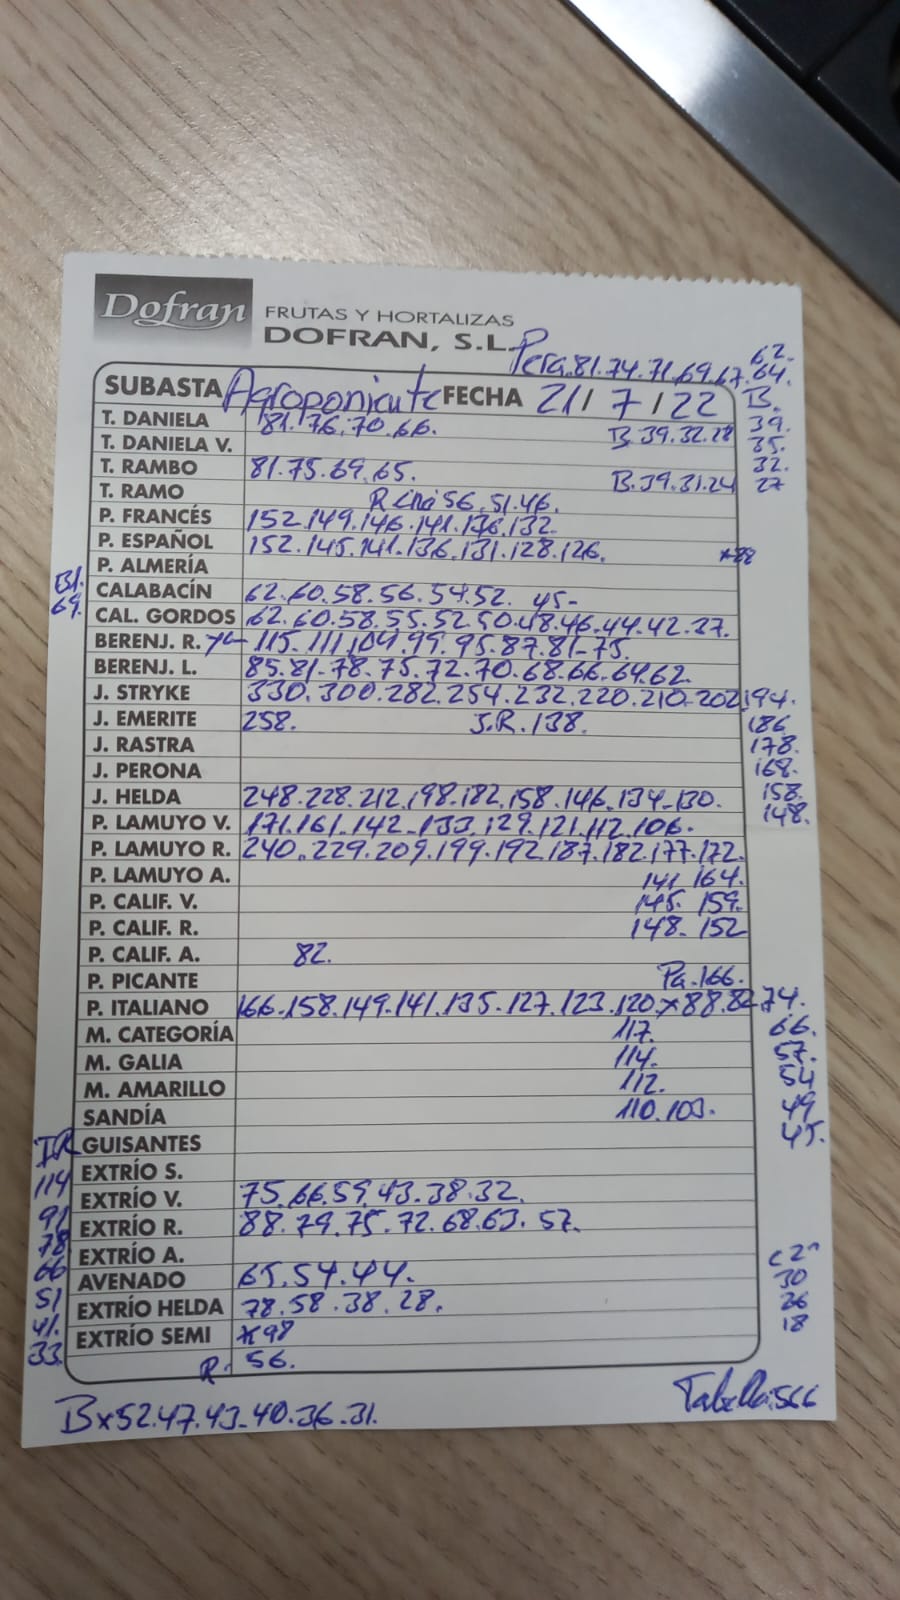 Dofran FRUTAS Y HORTALIZAS
DOFRAN, S.L.
Pera.81.74.71.69.67.64.
62.
SUBASTA Agroponiente FECHA 21/7/22 B.
T. DANIELA 81.76.70.66. B.39.32.28 39.
T. DANIELA V. 35.
T. RAMBO 81.75.69.65. B.39.31.24 32.
27
T. RAMO 56.51.46.
P. FRANCÉS 152.149.146.141.136.132.
P. ESPAÑOL 152.145.141.136.131.128.126. *88
P. ALMERÍA
Bl. CALABACÍN 62.60.58.56.54.52. 45-
69. CAL. GORDOS 62.60.58.55.52.50.48.46.44.42.37.
BERENJ. R. 115.111.104.99.95.87.81-75.
BERENJ. L. 85.81.78.75.72.70.68.66.64.62.
J. STRYKE 330.300.282.254.232.220.210.202.194.
J. EMERITE 258. J.R.138. 186
J. RASTRA 178.
J. PERONA 168.
J. HELDA 248.228.212.198.182.158.146.134-130. 158.
148.
P. LAMUYO V. 171.161.142-133.129.121.112.106.
P. LAMUYO R. 240.229.209.199.192.187.182.177.172.
P. LAMUYO A. 141 164.
P. CALIF. V. 145. 159.
P. CALIF. R. 148. 152
P. CALIF. A. 82.
P. PICANTE Pa.166.
P. ITALIANO 166.158.149.141.135.127.123.120.x88.82.74.
M. CATEGORÍA 117. 66.
M. GALIA 114. 57.
M. AMARILLO 112. 54
SANDÍA 110.103. 49
GUISANTES 45.
114 EXTRÍO S.
91 EXTRÍO V. 75.66.59.43.38.32.
78 EXTRÍO R. 88.79.75.72.68.63.57.
66 EXTRÍO A.
AVENADO 65.54.44. 30
51 EXTRÍO HELDA 78.58.38.28. 26
41. EXTRÍO SEMI *98 18
33. R. 56.
Bx52.47.43-40.36.31.